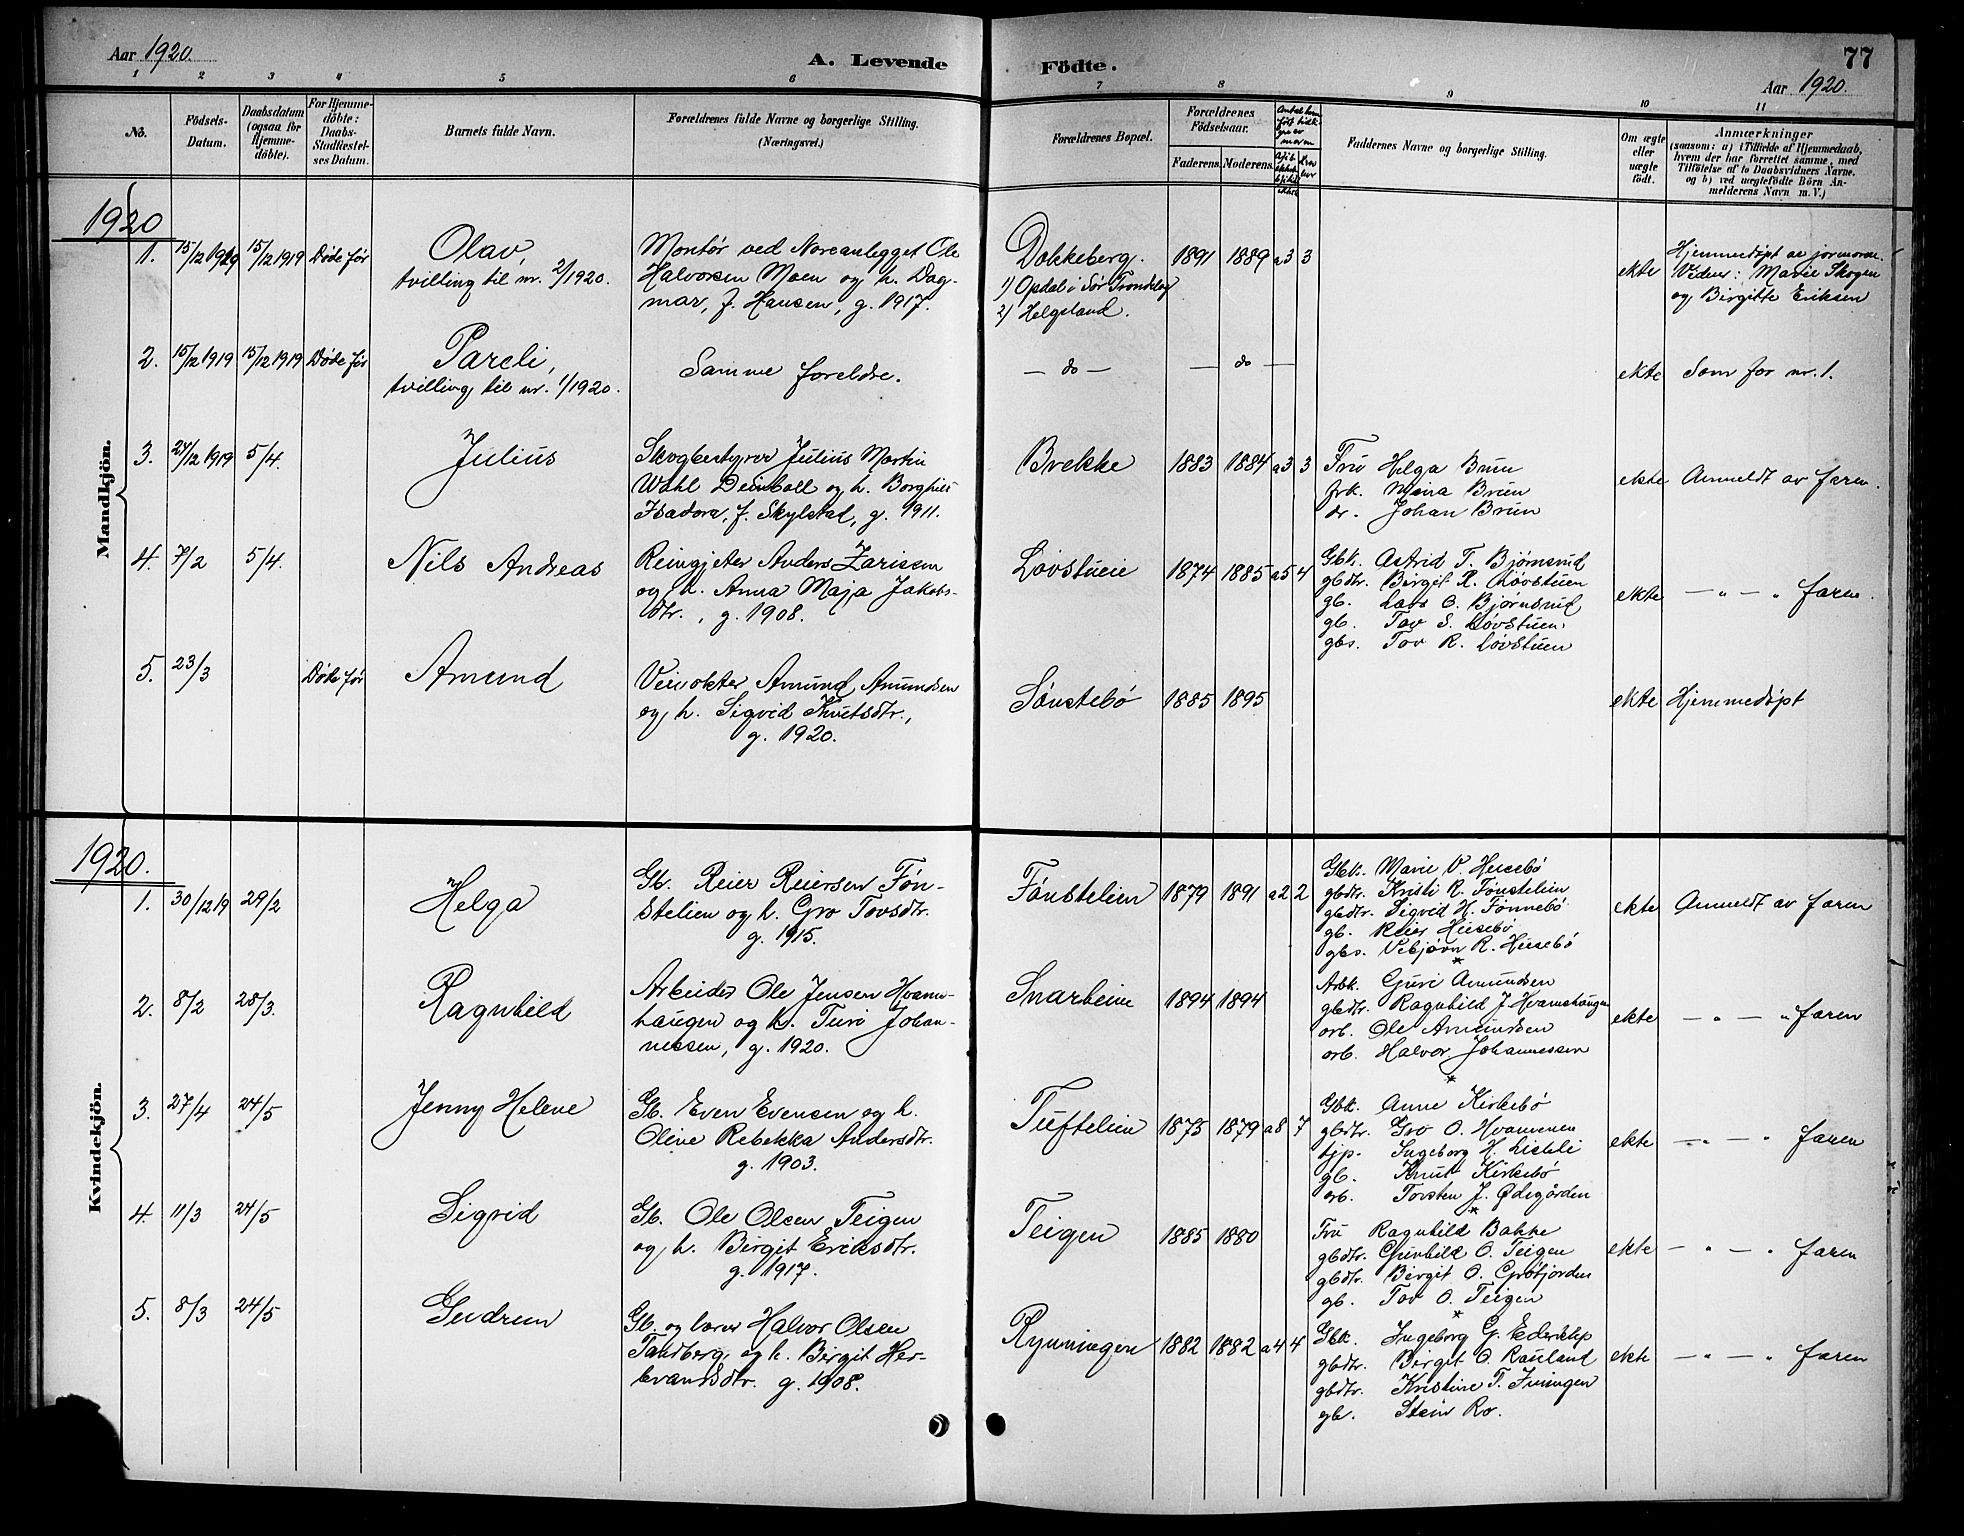 Aar 1920.
A. Levende Födte.
77
Aar 1920.
1 2 3 4 5 6 7 8 9 10 11
No.
Födsels-Datum.
Daabsdatum (ogsaa for Hjemme-döbte).
For Hjemme-döbte: Daabs-Stadfæstel-ses Datum.
Barnets fulde Navn.
Forældrenes fulde Navne og borgerlige Stilling.
(Næringsvei.)
Forældrenes Bopæl.
Forældrenes Födselsaar.
Faderens. Moderens.
Faddernes Navne og borgerlige Stilling.
Om ægte eller uægte födt.
Anmærkninger
(saasom: a) i Tilfælde af Hjemmedaab,
hvem der har forrettet samme, med
Tilföielse af to Daabsvidners Navne.
og b) ved uægtefödte Börn An-
melderens Navn m. V.)
Mandkjön.
1920
1. 15/12 1919 15/12 1919 Døde før
Olav,
tvilling til nr. 2/1920.
Montør ved Noreanlegget Ole
Halvorsen Moen og h. Dag-
mar, f. Hansen, g. 1917.
Dokkeberg.
1) Opdal i Sør Trondelag
2) Helgeland.
1891 1889 a3 3
ekte
Hjemmedøpt av jormoren
Vidner: Marie Skogen
og Birgitte Eriksen
2. 15/12 1919 15/12 1919 Døde før
Pareli,
tvilling til nr. 1/1920.
Samme foreldre.
— do — — do —
ekte Som for nr. 1.
3. 24/12 1919 5/4.
Julius
Skogbestyrer Julius Martin
Wahl Deinboll og h. Borghild
Isadora, f. Skylstad, g. 1911.
Brekke 1883 1884 a3 3
Fru Helga Brun
frk. Maria Brun
dr. Johan Brun
ekte Anmeldt av faren.
4. 7/2 5/4.
Nils Andreas
Reingjeter Anders Zarissen
og h. Anna Maja Jakobs-
dtr., g. 1908.
Løvstuen 1874 1885 a5 4
Gbk. Astrid T. Bjørnsrud
gbdtr. Birgit R. Løvstuen
gb. Lars O. Bjørnsrud
gb. Tov S. Løvstuen
gbs. Tov R. Løvstuen
ekte — " — " faren.
5. 23/3 Døde før
Amund
Veivokter Amund Amundsen
og h. Sigrid Knutsdtr.,
g. 1920.
Sønstebø 1885 1895
ekte Hjemmedøpt
Kvindekjön.
1920.
1. 30/12 19 29/2
Helga
Gb. Reier Reiersen Føn-
stelien og h. Gro Tovsdtr.
g. 1915.
Fønstelien 1879 1891 a2 2
Gbk. Marie O. Husebø
gbdtr. Kristi R. Fønstelien
gbdtr. Sigrid H. Fønnebø
gb. Reier Husebø
gbs. Vebjørn R. Husebø
ekte Anmeldt av faren
2. 8/2 28/3.
Ragnhild
Arbeider Ole Jensen Hvams-
haugen og h. Turi Johan-
nessen, g. 1920.
Snarheim 1894 1894
Arbk. Guri Amundsen
gbdtr. Ragnhild J. Hvamshaugen
arb. Ole Amundsen
arb. Halvor Johannessen
ekte — " — " faren
3. 27/4 24/5
Jenny Helene
Gb. Even Evensen og h.
Oline Rebekka Andersdtr.
g. 1903.
Tuftelien 1875 1879 a8 7
Gbk. Anne Kirkebø
gbdtr. Gro O. Hvammen
tjp. Ingeborg H. Lisleli
gb. Knut Kirkebø
arb. Torsten J. Ødegården
ekte — " — " faren
4. 11/3 24/5
Sigrid
Gb. Ole Olsen Teigen
og h. Birgit Eriksdtr.
g. 1917.
Teigen 1885 1880
Fru Ragnhild Bakke
gbdtr. Gunhild O. Teigen
gbdtr. Birgit O. Grøtjorden
gb. Tov O. Teigen
ekte — " — " faren
5. 8/3 24/5
Gudrun
Gb. og lærer Halvor Olsen
Tandberg og h. Birgit Her-
brandsdtr. g. 1908.
Rynningen 1882 1882 a4 4
Gbk. Ingeborg G. Ederklep
gbdtr. Birgit O. Rauland
gbdtr. Kristine T. Juningen
gb. Stein Ro.
ekte — " — " faren